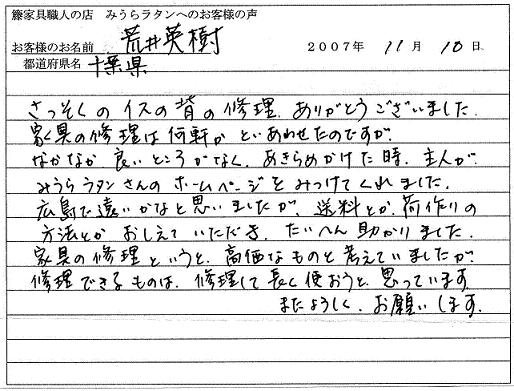 籐家具職人の店 みうらラタンへのお客様の声
お客様のお名前 荒井英樹 2007年 11月 10日
都道府県名 千葉県
さっそくのイスの背の修理、ありがとうございました。
家具の修理は何軒か といあわせたのですが、
なかなか 良いところがなく、あきらめかけた時、主人が
みうらラタンさんのホームページをみつけてくれました。
広島で遠いかなと思いましたが、送料とか荷作りの
方法とか おしえていただき、たいへん助かりました。
家具の修理というと、高価なものと考えていましたが、
修理できるものは、修理して長く使おうと、思っています。
またよろしく、お願いします。